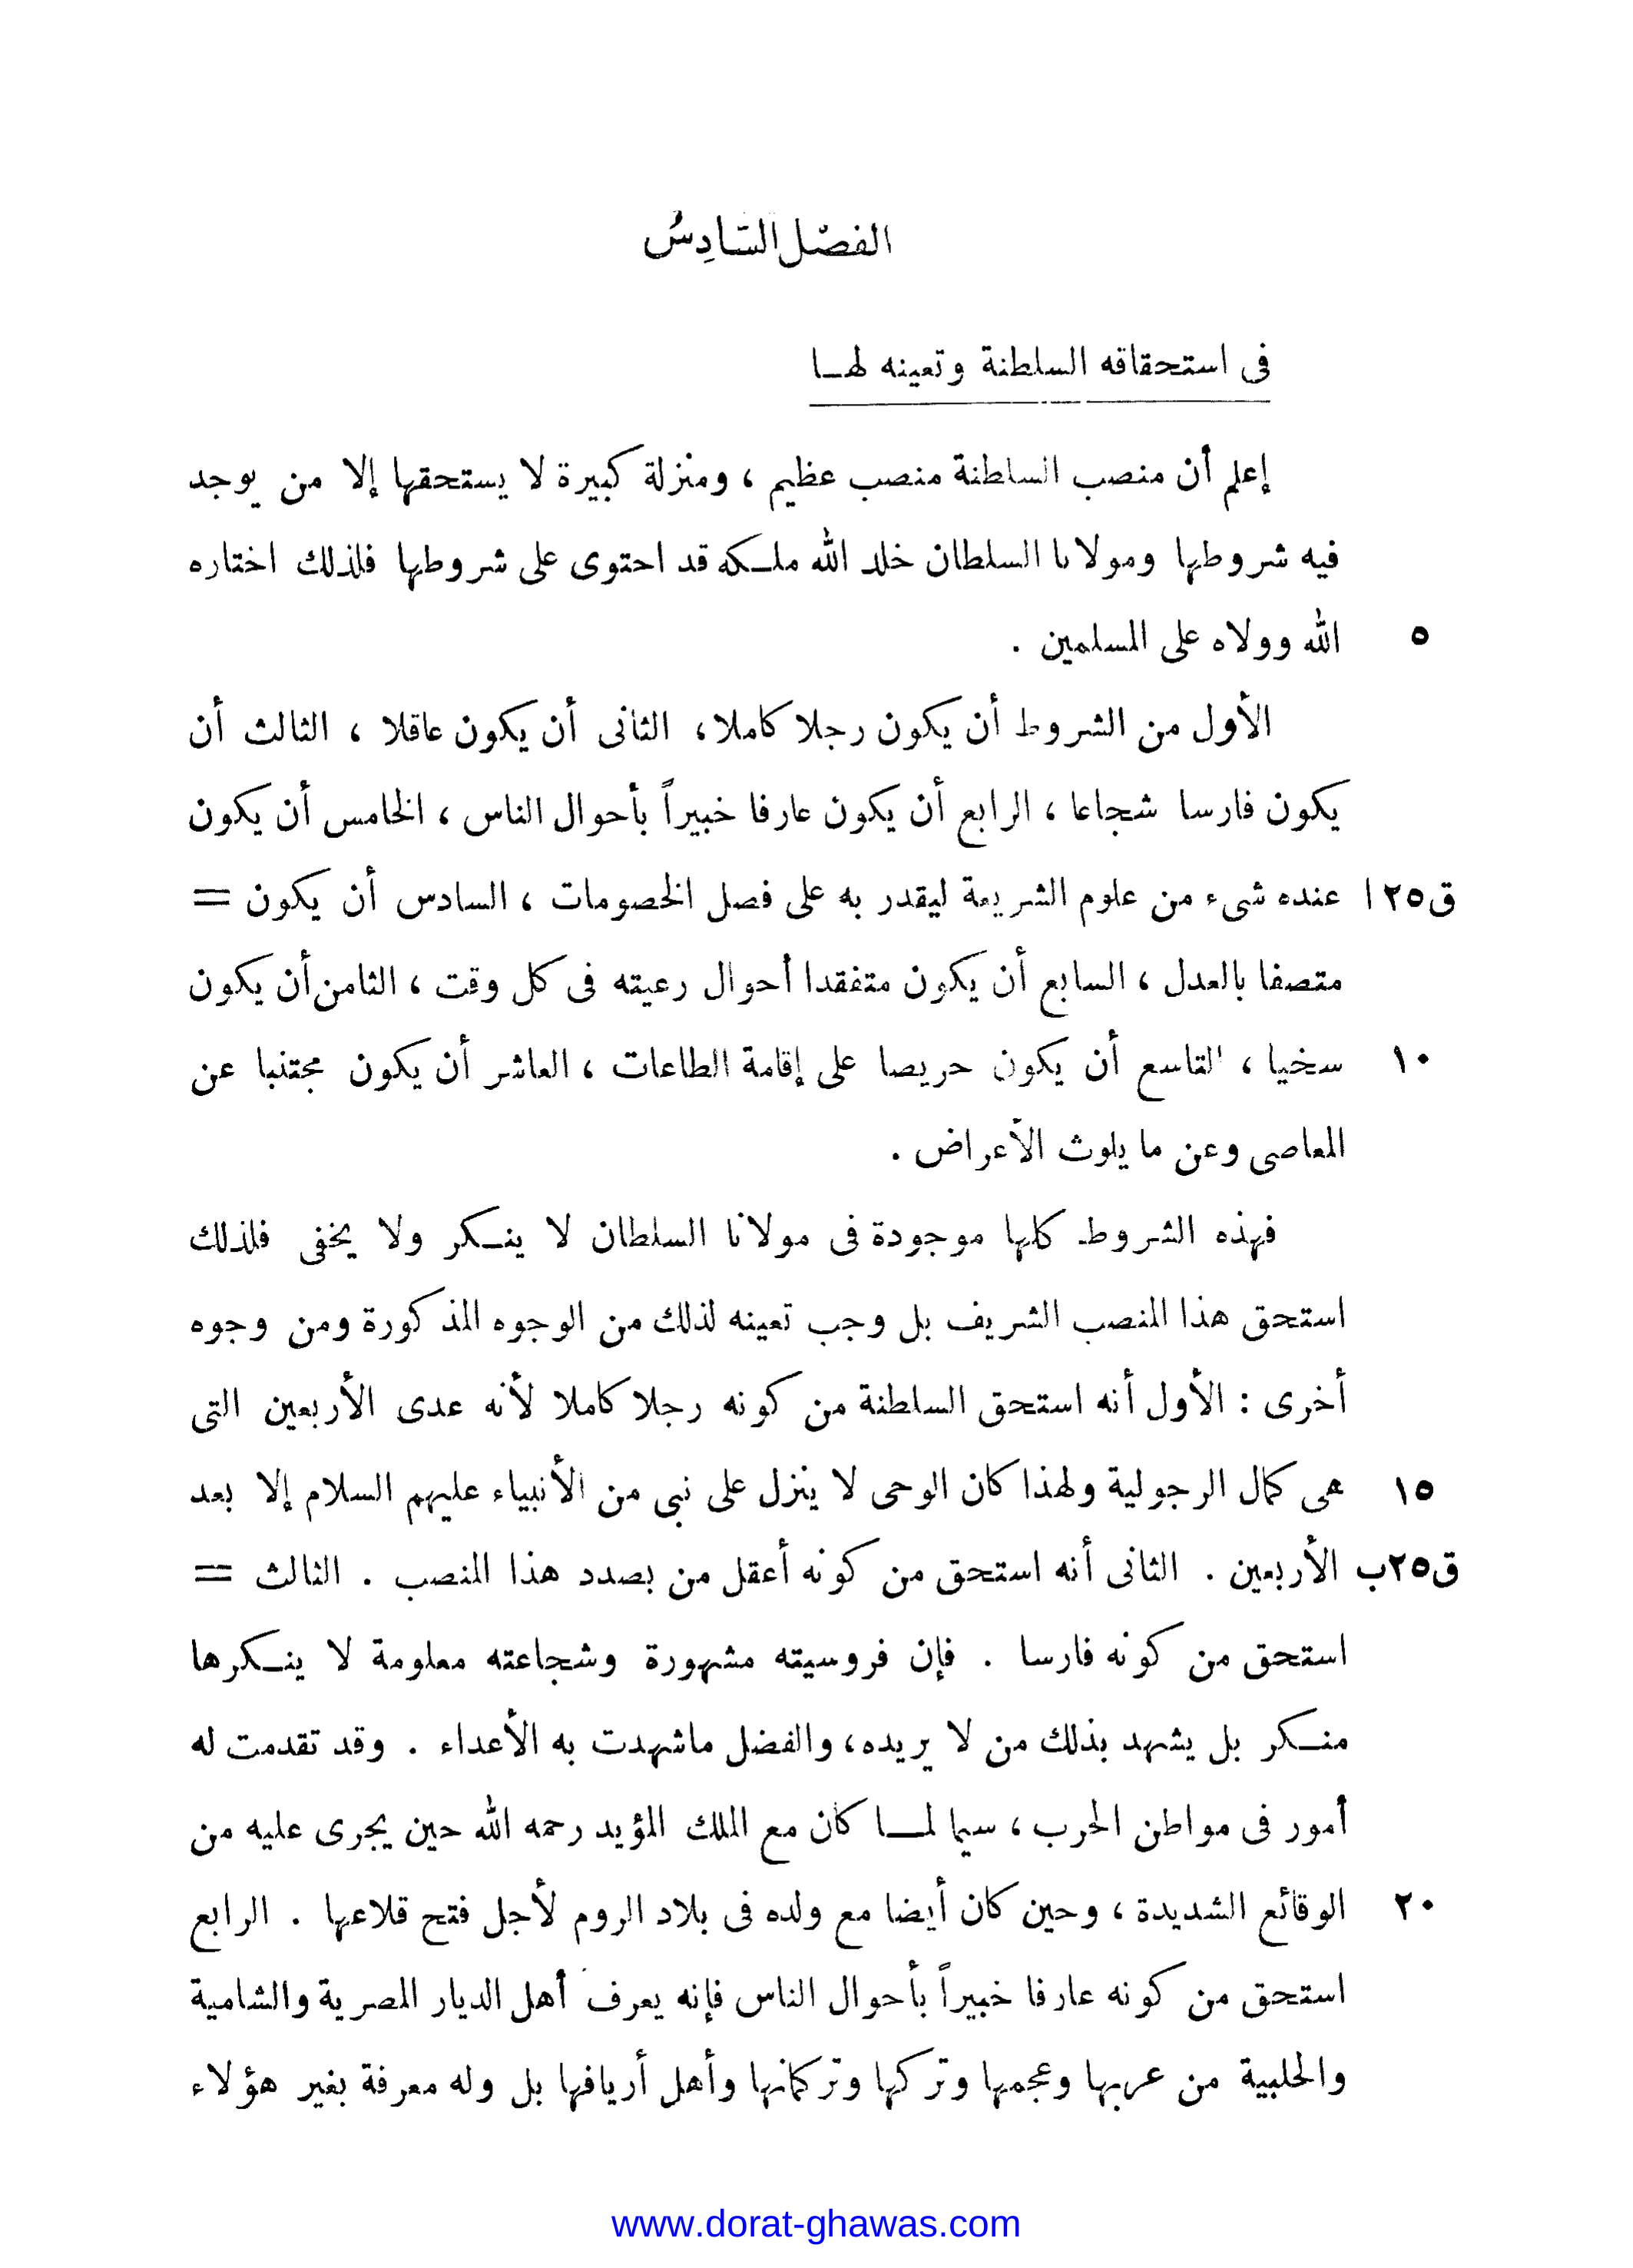 الفصل السادس
فى استحقاقه السلطنة وتعينه لهـا
إعلم أن منصب السلطنة منصب عظيم ، ومنزلة كبيرة لا يستحقها إلا من يوجد
فيه شروطها ومولانا السلطان خلد الله ملـكه قد احتوى على شروطها فلذلك اختاره
٥ الله وولاه على المسلمين .
الأول من الشروط أن يكون رجلا كاملا ، الثانى أن يكون عاقلا ، الثالث أن
يكون فارسا شجاعا ، الرابع أن يكون عارفا خبيراً بأحوال الناس ، الخامس أن يكون
ق٢٥ا عنده شىء من علوم الشريعة ليقدر به على فصل الخصومات ، السادس أن يكون =
متصفا بالعدل ، السابع أن يكون متفقدا أحوال رعيته فى كل وقت ، الثامن أن يكون
١٠ سخيا ، التاسع أن يكون حريصا على إقامة الطاعات ، العاشر أن يكون مجتنبا عن
المعاصى وعن ما يلوث الأعراض .
فهذه الشروط كلها موجودة فى مولانا السلطان لا ينـكر ولا يخفى فلذلك
استحق هذا المنصب الشريف بل وجب تعينه لذلك من الوجوه المذكورة ومن وجوه
أخرى : الأول أنه استحق السلطنة من كونه رجلا كاملا لأنه عدى الأربعين التى
١٥ هى كمال الرجولية ولهذا كان الوحى لا ينزل على نبى من الأنبياء عليهم السلام إلا بعد
ق٢٥ب الأربعين . الثانى أنه استحق من كونه أعقل من بصدد هذا المنصب . الثالث =
استحق من كونه فارسا . فإن فروسيته مشهورة وشجاعته معلومة لا ينـكرها
منـكر بل يشهد بذلك من لا يريده ، والفضل ماشهدت به الأعداء . وقد تقدمت له
أمور فى مواطن الحرب ، سيما لمـا كان مع الملك المؤيد رحمه الله حين يجرى عليه من
٢٠ الوقائع الشديدة ، وحين كان أيضا مع ولده فى بلاد الروم لأجل فتح قلاعها . الرابع
استحق من كونه عارفا خبيراً بأحوال الناس فإنه يعرف أهل الديار المصرية والشامية
والحلبية من عربها وعجمها وتركها وتركمانها وأهل أريافها بل وله معرفة بغير هؤلاء
www.dorat-ghawas.com